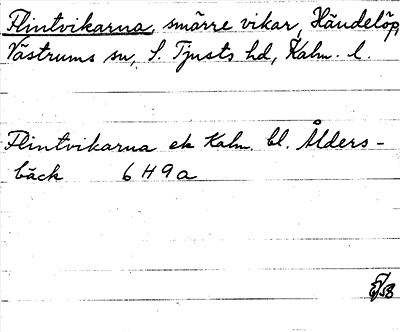 Flintvikarna, smärre vikar, Händelöp,
Västrums sn, S. Tjusts hd, Kalm. l.
Flintvikarna ek Kalm. bl. Ålders-
bäck 6 H 9 a